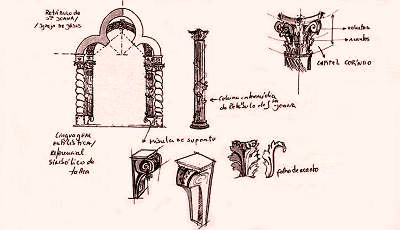 Retábulo de
Sta Joana/
Igreja de Jesus
volutas
acantos
capitel coríntio
coluna intermédia
do Retábulo de Sta
Joana
linguagem
estilística/
Referencial
simbólico de
talha
mísula de suporte
folha de acanto